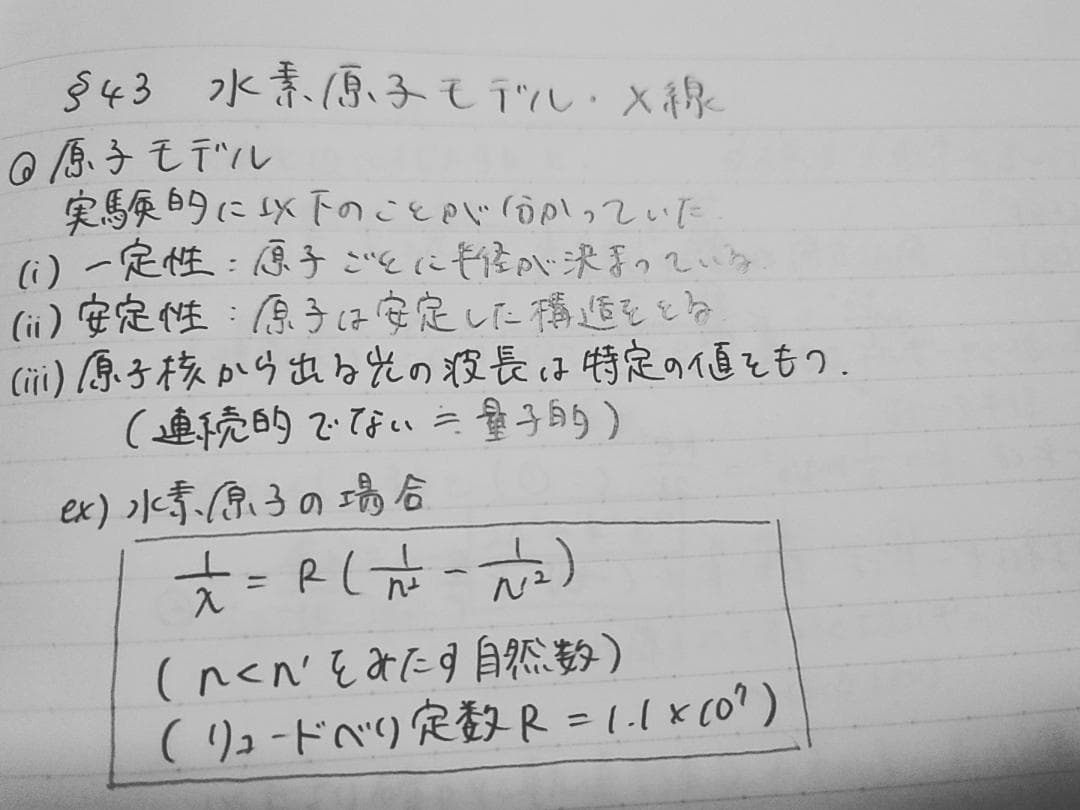 §43 水素原子モデル・X線
◎原子モデル
実験的に以下のことが分かっていた.
(i) 一定性:原子ごとに半径が決まっている
(ii) 安定性:原子は安定した構造をとる
(iii) 原子核から出る光の波長は特定の値をもつ.
(連続的でない≒量子的)
ex) 水素原子の場合
1/λ = R(1/n² − 1/n'²)
(n<n'をみたす自然数)
(リュードベリ定数R = 1.1×10⁷)